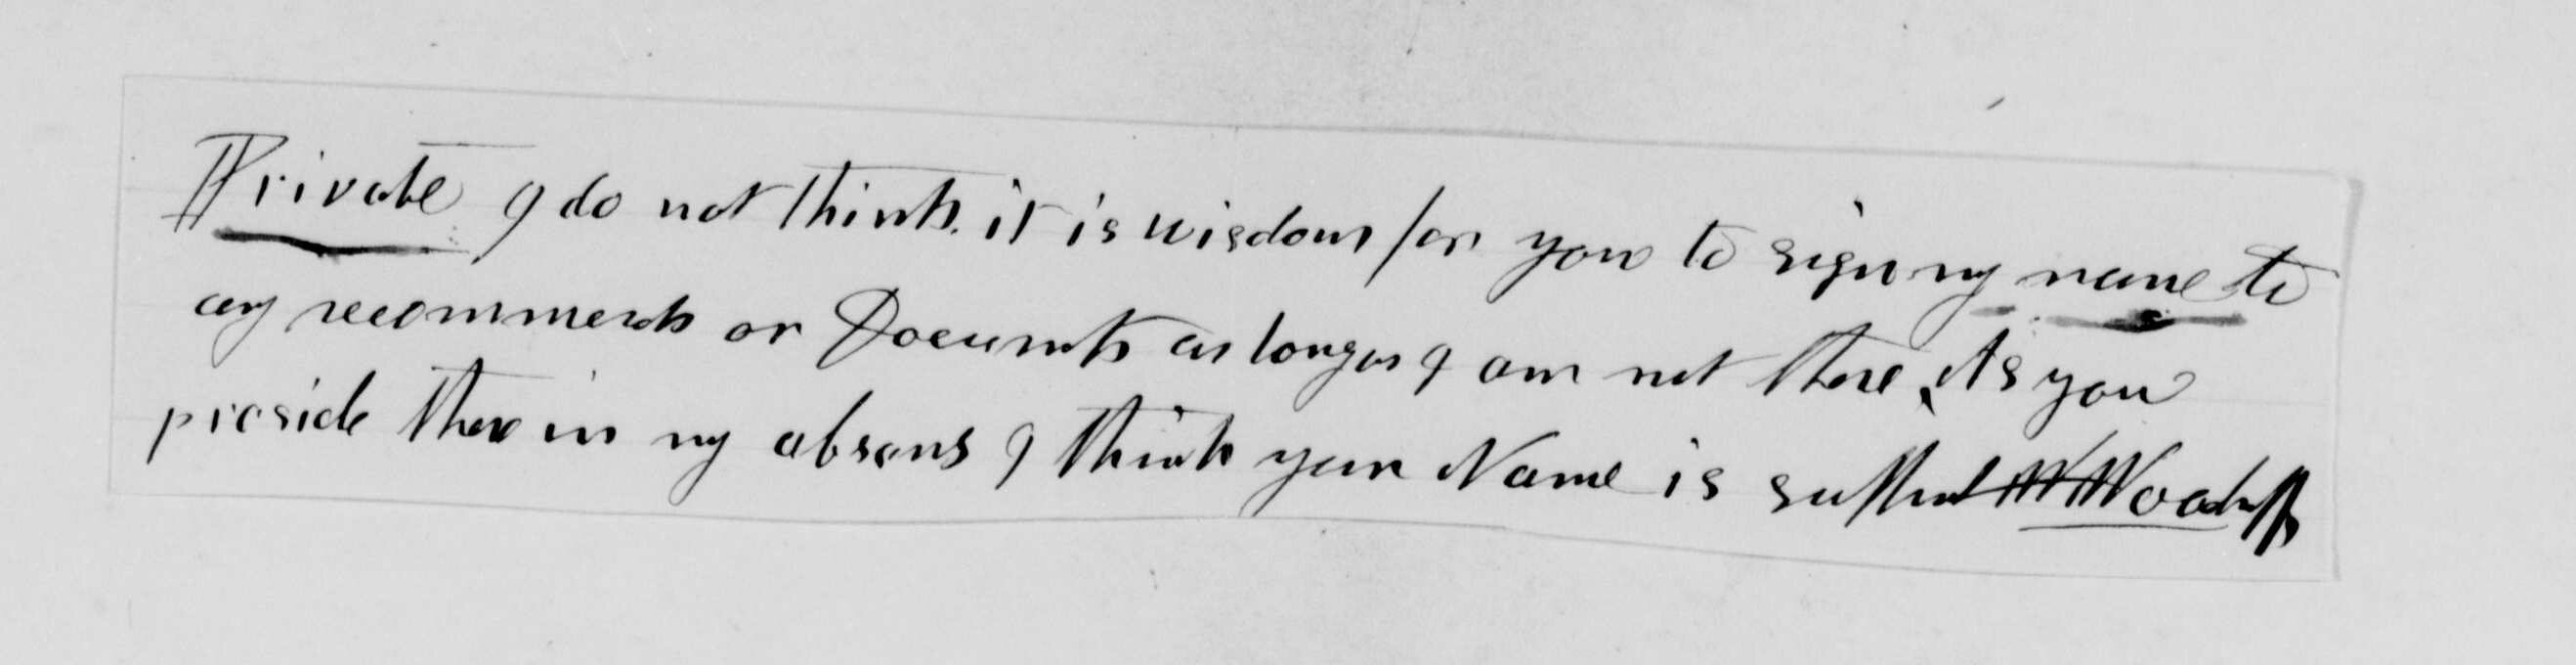 Private I do not think it is wisdom for you to sign my name to
any recommends or Documents as long as I am not there, As you
preside there in my absens I think your Name is suffient W Woodruff